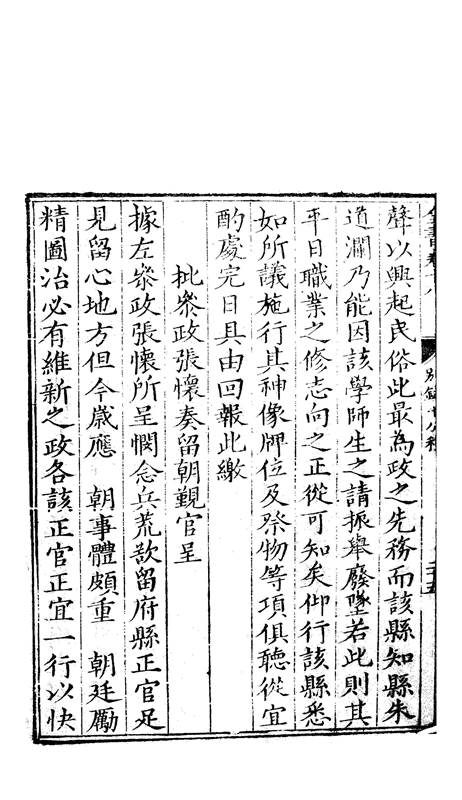 全書卷十八　別錄十公移　二十五
聲以興起民俗此最為政之先務而該縣知縣朱
道瀾乃能因該學師生之請振舉廢墜若此則其
平日職業之修志向之正從可知矣仰行該縣悉
如所議施行其神像牌位及祭物等項俱聽從宜
酌處完日具由回報此繳
批叅政張懷奏留朝覲官呈
據左叅政張懷所呈憫念兵荒欲留府縣正官足
見留心地方但今歲應　朝事體頗重　朝廷勵
精圖治必有維新之政各該正官正宜一行以快